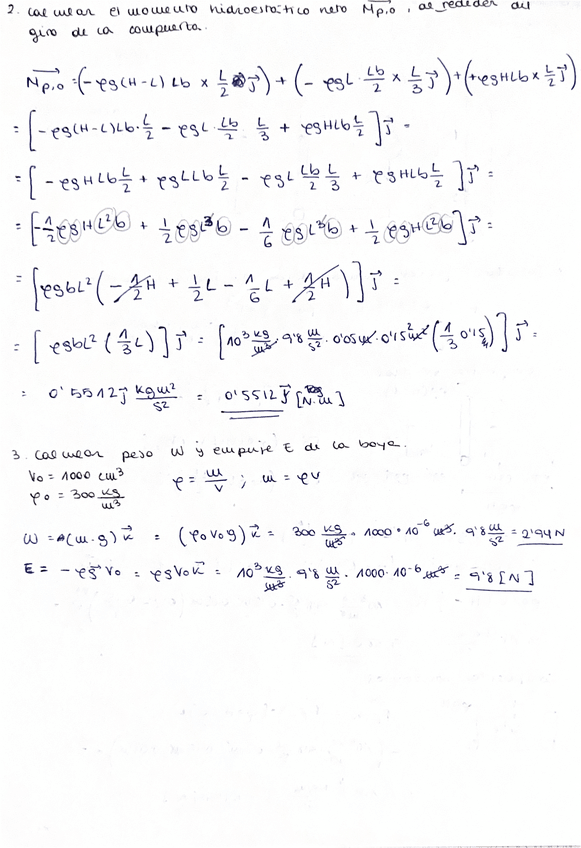 2. Calcular el momento hidroestático neto M⃗p,o, alrededor del
giro de la compuerta.
M⃗p,o = (-ρg(H-L) Lb × L/2 j⃗) + (-ρgL · Lb/2 × L/3 j⃗) + (+ρgHLb × L/2 j⃗)
= [-ρg(H-L)Lb · L/2 - ρgL · Lb/2 L/3 + ρgHLb L/2] j⃗ =
= [-ρgHLb L/2 + ρgLLb L/2 - ρgL Lb/2 L/3 + ρgHLb L/2] j⃗ =
= [-1/2 ρgHL²b + 1/2 ρgL³b - 1/6 ρgL³b + 1/2 ρgHL²b] j⃗ =
= [ρgbL² (-1/2 H + 1/2 L - 1/6 L + 1/2 H)] j⃗ =
= [ρgbL² (1/3 L)] j⃗ = [10³ kg/m³ · 9'8 m/s² · 0'05m · 0'15² m² (1/3 0'15)] j⃗ =
= 0'5512 j⃗ kg m²/s² = 0'5512 j⃗ [N·m]
3. Calcular peso W y empuje E de la boya.
V₀ = 1000 cm³
ρ = m/V ; m = ρV
ρ₀ = 300 kg/m³
W = (m·g) k⃗ = (ρ₀V₀g) k⃗ = 300 kg/m³ · 1000·10⁻⁶ m³ · 9'8 m/s² = 2'94 N
E = -ρg⃗V₀ = ρgV₀k⃗ = 10³ kg/m³ · 9'8 m/s² · 1000·10⁻⁶ m³ = 9'8 [N]